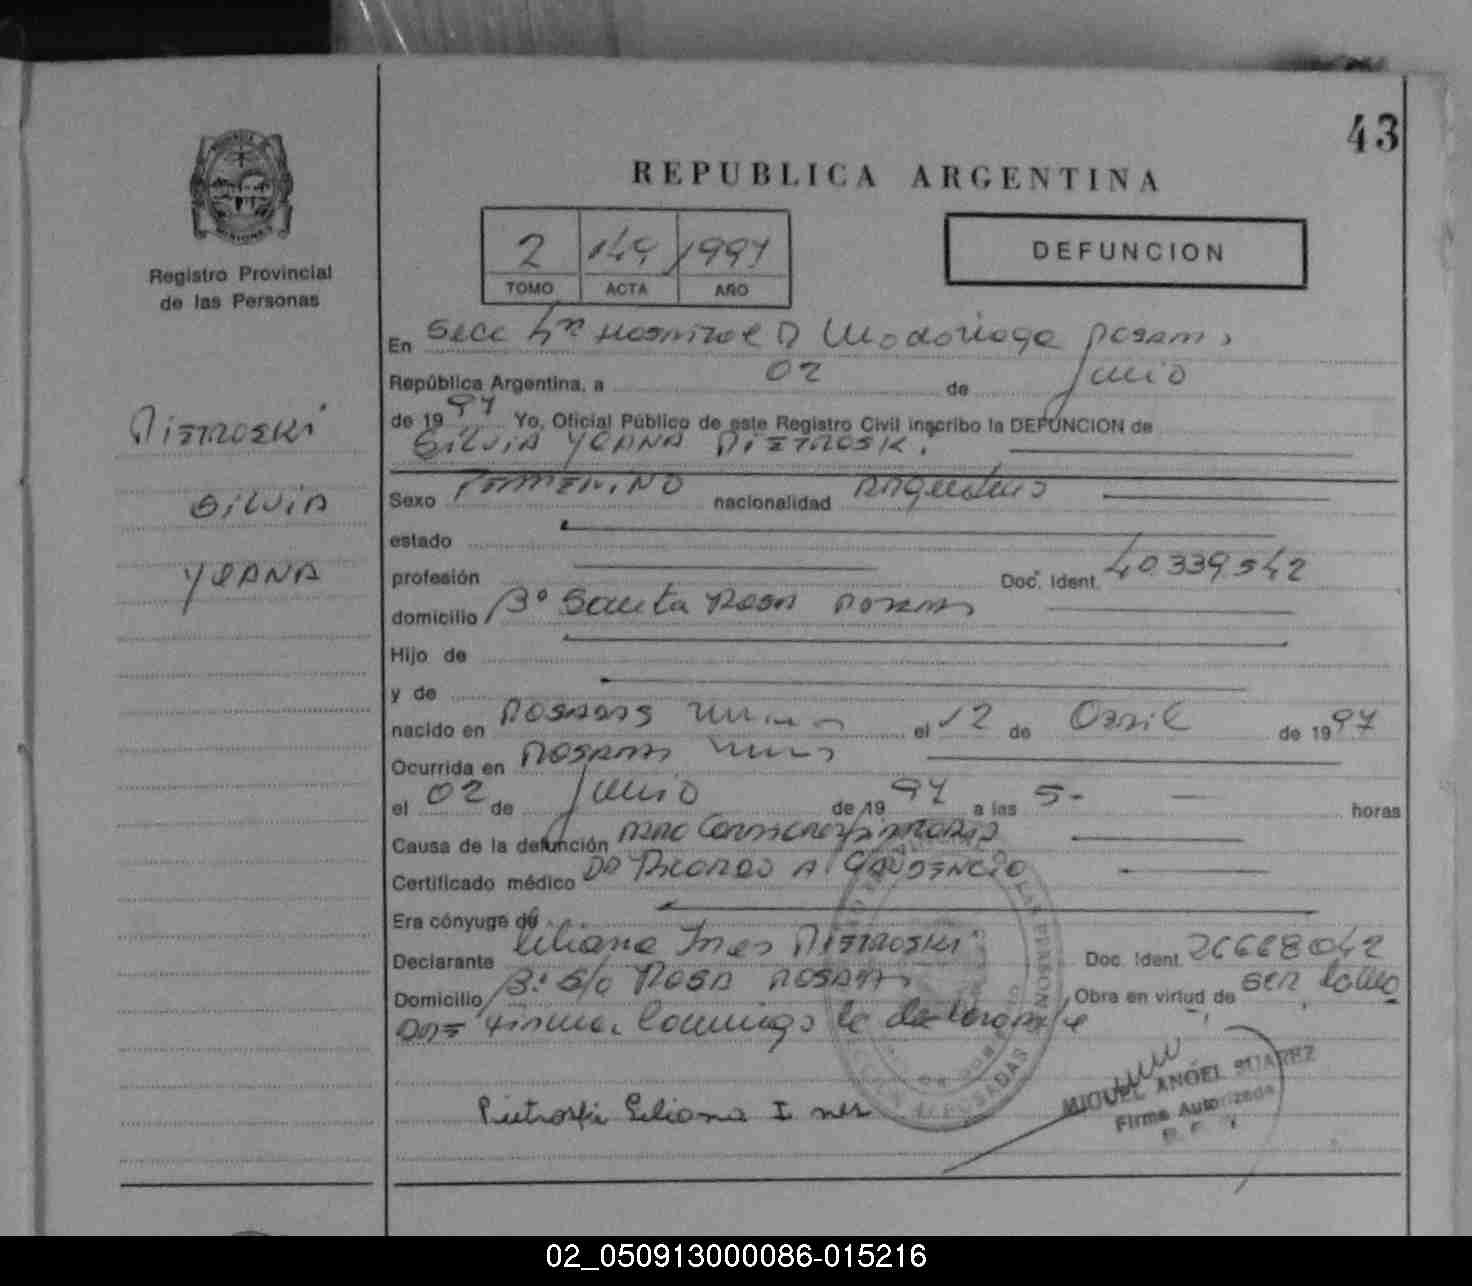 43
REPUBLICA ARGENTINA
2 149 1997
TOMO ACTA AÑO
DEFUNCION
Registro Provincial
de las Personas
PIETROSKI
SILVIA
YOANA
En Secc 4ta Hospital R Madariaga Posadas
República Argentina, a 02 de Junio
de 1997 Yo, Oficial Público de este Registro Civil inscribo la DEFUNCION de
SILVIA YOANA PIETROSKI
Sexo FEMENINO nacionalidad Argentina
estado
profesión Doc. Ident. 40.339.542
domicilio Bº Santa ROSA POSADAS
Hijo de
y de
nacido en POSADAS Misiones el 12 de Abril de 1997
Ocurrida en POSADAS Misiones
el 02 de Junio de 1997 a las 5- horas
Causa de la defunción PARO Cardiorespiratorio
Certificado médico Dr RICARDO A GAUDENCIO
Era cónyuge de
Declarante Liliana Ines PIETROSKI Doc. Ident. 26668042
Domicilio Bº S/a ROSA POSADAS Obra en virtud de ser
firma conmigo la declarante
Pietroski Liliana Ines
MIGUEL ANGEL SUAREZ
Firma Autorizada
02_050913000086-015216